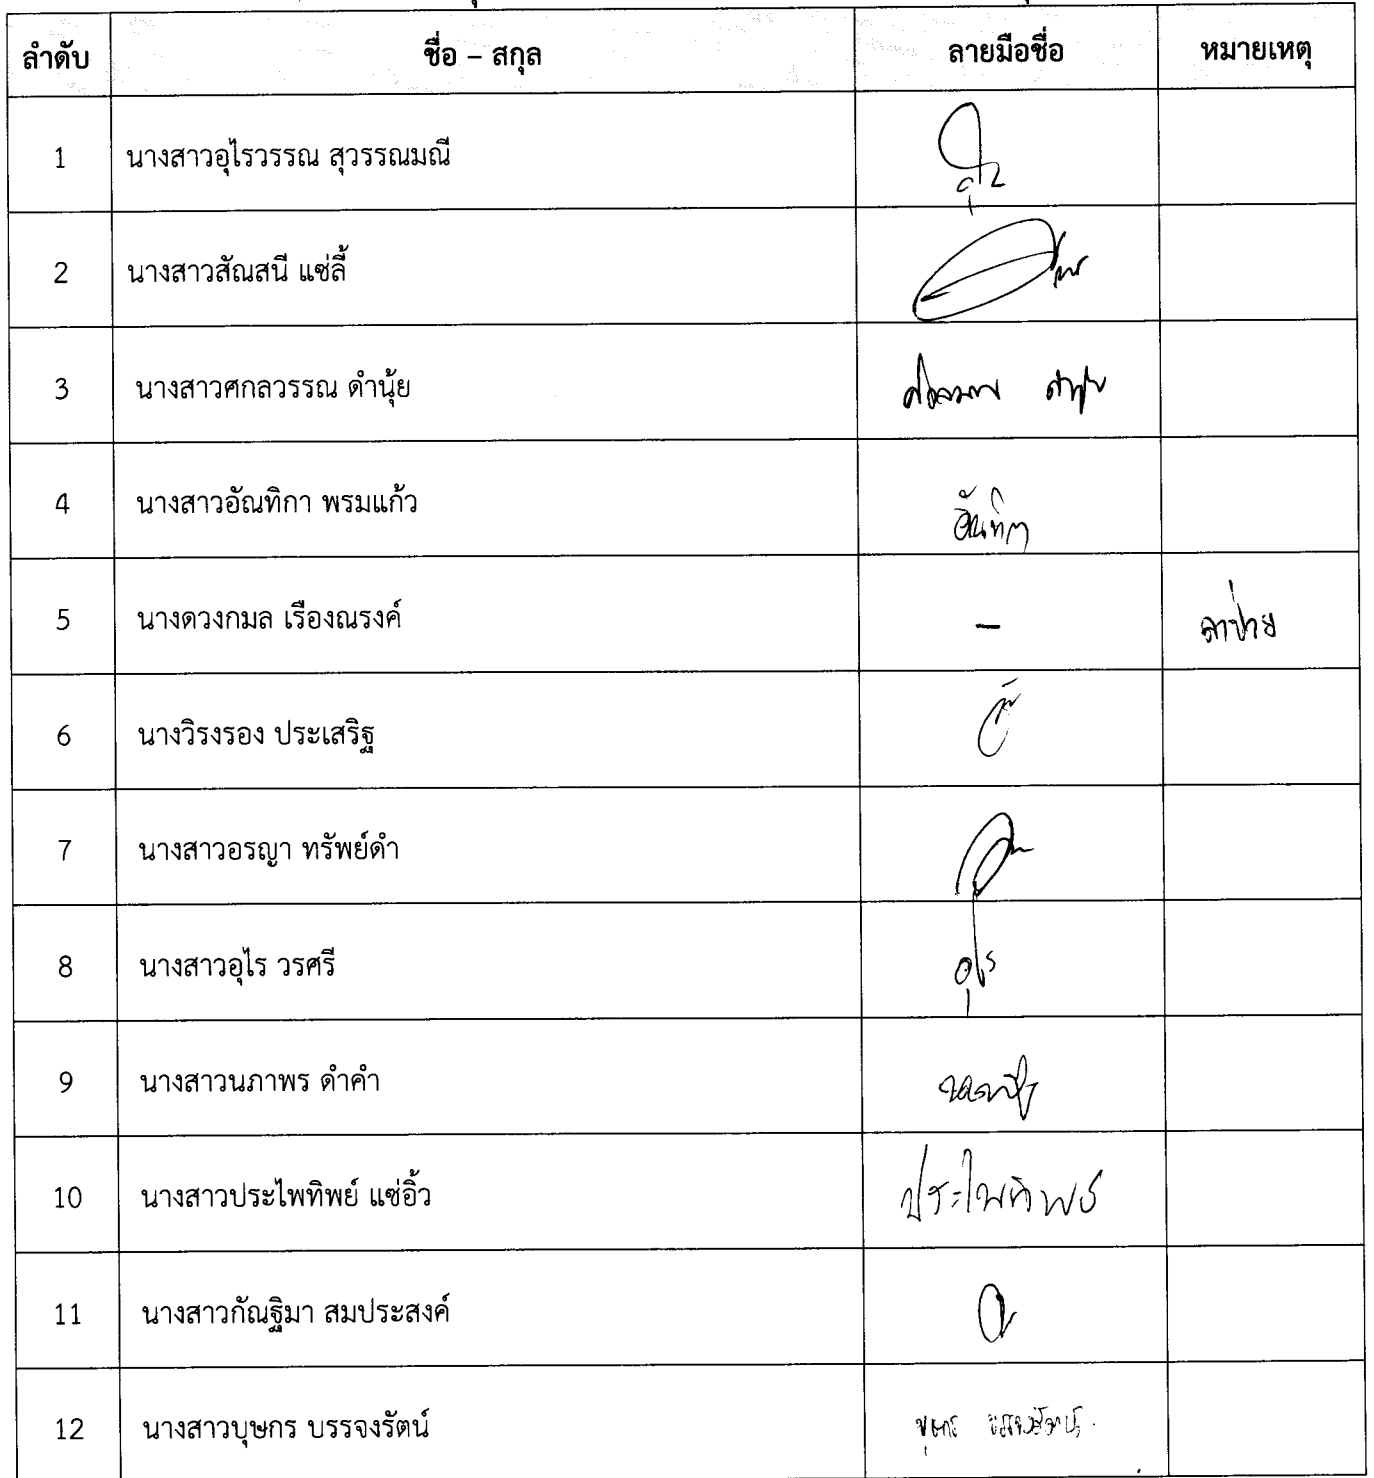 ลำดับ ชื่อ – สกุล ลายมือชื่อ หมายเหตุ
1 นางสาวอุไรวรรณ สุวรรณมณี
2 นางสาวสัณสนี แซ่ลี้
3 นางสาวศกลวรรณ ดำนุ้ย ศกลวรรณ ดำนุ้ย
4 นางสาวอัณทิกา พรมแก้ว อัณทิกา
5 นางดวงกมล เรืองณรงค์ – ลาป่วย
6 นางวิรงรอง ประเสริฐ
7 นางสาวอรญา ทรัพย์ดำ
8 นางสาวอุไร วรศรี อุไร
9 นางสาวนภาพร ดำคำ
10 นางสาวประไพทิพย์ แซ่อิ้ว ประไพทิพย์
11 นางสาวกัณฐิมา สมประสงค์
12 นางสาวบุษกร บรรจงรัตน์ บุษกร บรรจงรัตน์